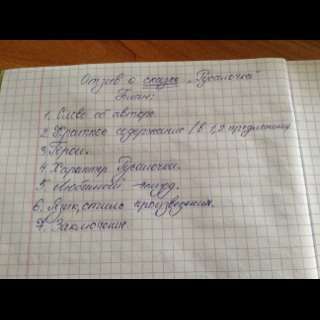 Отзыв о сказке „Русалочка"
План:
1. Слово об авторе.
2. Краткое содержание (в 1,2 предложениях
3. Герои.
4. Характер Русалочки.
5. Любимый эпизод.
6. Язык, стиль произведения.
7. Заключение.